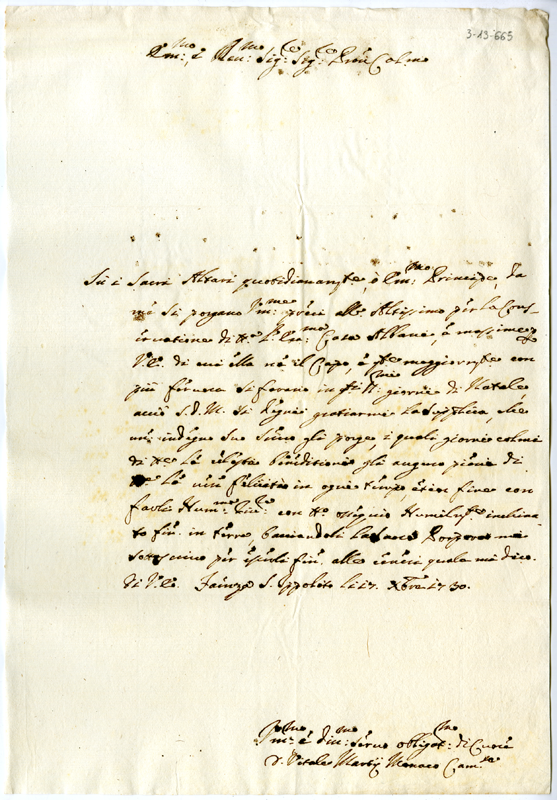 3-13-665
Em.mo, e Rev.mo Sig.re Sig.re Prōn Col.mo
Sù i Sacri Altari quotidianam.te, ò Em.mo Principe, da
mè si porgano preci all' Altissimo per la Cons-
ervatione di Casa Albani, e massime
V.E. di cui ella nè il Capo, e maggiorm.te con
più fervore si farano in q.ti giorni di Natale
acciò S.D.M. si degni gratiarmi la suplica, che
un indegno suo Servo gli porge, i quali giorni colmi
di la celeste beneditione gli auguro pieni di
vera felicità in ogni tempo e fine con
fargli con ossequio Humilm.te inchina-
to fin in terra baciandoli la Sacra Porpora mi
sottoscrivo per fin alle ceneri quale mi dico
Di V.E. Faenza S. Ippolito li 17. Xbre 1730.
e servo obligat.mo di Cuore
D. Vitale Martij Monaco Cam.se